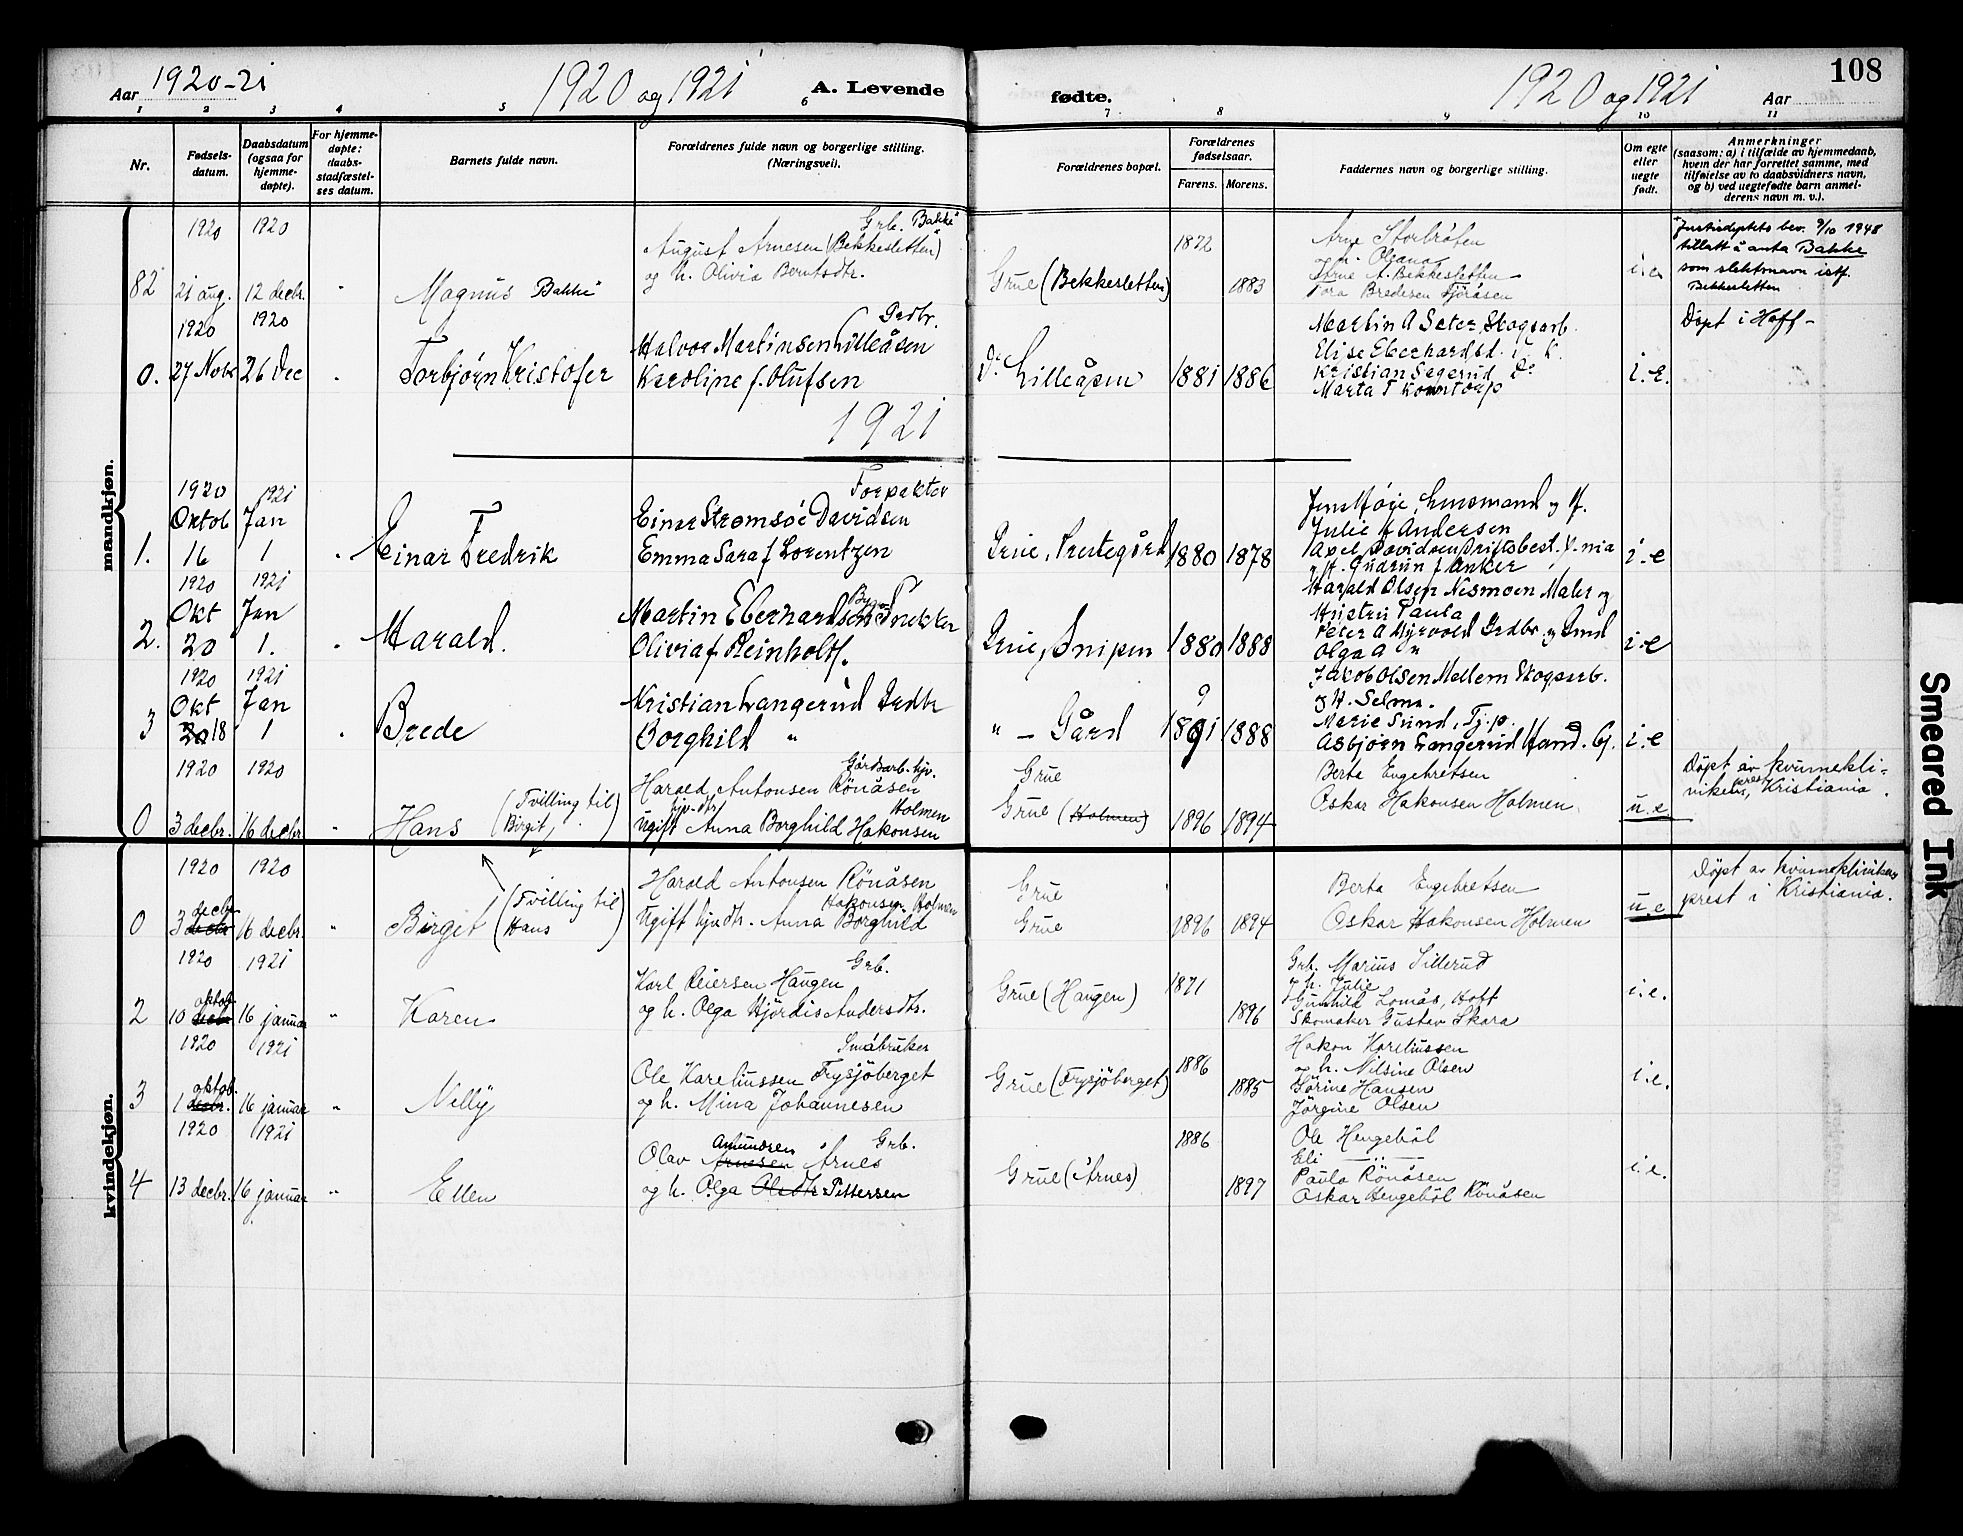 Aar 1920-21
1920 og 1921
A. Levende
fødte.
1920 og 1921
Aar
108
1 2 3 4 5 6 7 8 9 10 11
Nr.
Fødsels-
datum.
Daabsdatum
(ogsaa for
hjemme-
døpte).
For hjemme-
døpte:
daabs-
stadfæstel-
ses datum.
Barnets fulde navn.
Forældrenes fulde navn og borgerlige stilling.
(Næringsvei).
Forældrenes bopæl.
Forældrenes
fødselsaar.
Farens. Morens.
Faddernes navn og borgerlige stilling.
Om egte
eller
uegte
født.
Anmerkninger
(saasom: a) i tilfælde av hjemmedaab,
hvem der har forrettet samme, med
tilføielse av to daabsvidners navn,
og b) ved uegtefødte barn anmel-
derens navn m. v.).
mandkjøn.
82
1920
21 aug.
1920
12 decbr.
"
Magnus Bakke"
Grb. Bakke"
August Arnesen (Bekkesletten)
og h. Olivia Berntsdtr.
Grue (Bekkesletten)
1872
1883
Arne Storbråten
og h. Oleana
Arne A. Bekkesletten
Tora Bredesen Tjöråsen
i.e.
Justisdeptets bev. 9/10 1948
tillatt å anta Bakke
som slektsnavn istf.
Bekkesletten
0.
1920
27 Nobr
1920
26 Dec
"
Torbjørn Kristofer
Grdbr.
Halvor Martinsen Lilleåsen
Karoline f. Olufsen
Do Lilleåsen
1881 1886
Martin A Seter, Skogsarb.
Elise Eberhardsd.
Kristian Segerud Do
Marta T Komtorp
i.e.
Døpt i Hoff –
1921
1.
1920
Oktob
16
1921
Jan
1
"
Einar Fredrik
Forpakter
Einar Strømsøe Davidsen
Emma Sara f Lorentzen
Grue, Prestegård
1880 1878
Jens Høie, Lensmand og H.
Julie f Andersen
Axel Davidsen Driftsbest.
og H. Gudrun f Anker
i.e
2.
1920
Okt
20
1921
Jan
1.
"
Harald.
Martin Eberhardsen Snekker
Olivia f Reinholts.
Grue, Snipen
1880 1888
Harald Olsen Nesmoen Maler og
Hustru Paula
Peter A Myrvold Grdbr. og
Olga A "
i.e
3
1920
Okt
20 18
1921
Jan
1
"
Brede
Kristian Langerud Grdbr
Borghild "
" – Gård
1891 1888
Jakob Olsen Mellem Skogsarb.
og H. Selma.
Marie Sund, Tj.p.
Asbjørn Langerud
i.e
0
1920
3 decbr.
1920
16 decbr.
"
Hans (Tvilling til
Birgit)
Gårdarb. hjv.
Harald Antonsen Rönåsen
hjv. dtr. Holmen
Ugift Anna Borghild Hakonsen
Grue
Grue (Holmen)
1896 1894
Berta Engebretsen
Oskar Hakonsen Holmen
u.e
Döpt av kvinnekli-
nikens prest, Kristiania.
kvindekjøn.
0
1920
3 decbr. decbr
1920
16 decbr.
"
Birgit (Tvilling til
Hans)
Harald Antonsen Rönåsen
Hakonsen Holmen
Ugift hjv. dtr. Anna Borghild
Grue
Grue
1896 1894
Berta Engebretsen
Oskar Hakonsen Holmen
u.e
Döpt av kvinneklinikens
prest i Kristiania.
2
1920
10 oktob. decbr
1921
16 januar
"
Karen
Grb.
Karl Reiersen Haugen
og h. Olga Hjördis Andersdtr.
Grue (Haugen)
1871
1896
Grb. Marius Sillerud
og h. Julie
Gunhild Lomås, Hoff
Skomaker Gustav Skara
i.e.
3
1920
1 oktob. decbr.
1921
16 januar
"
Nelly
Småbruker
Ole Kareliussen Frysjöberget
og h. Mina Johannesen
Grue (Frysjöberget)
1886
1885
Hakon Kareliussen
og h. Nilsine Olsen
Görine Hansen
Jörgine Olsen
i.e.
4
1920
13 decbr.
1921
16 januar
"
Ellen
Grb.
Olav Amundsen Arnesen Årnes
og h. Olga Olsdtr Pettersen
Grue (Årnes)
1886
1897
Ole Hengeböl
Eli –"–
Paula Rönåsen
Oskar Hengeböl Rönåsen
i.e.
Smeared Ink